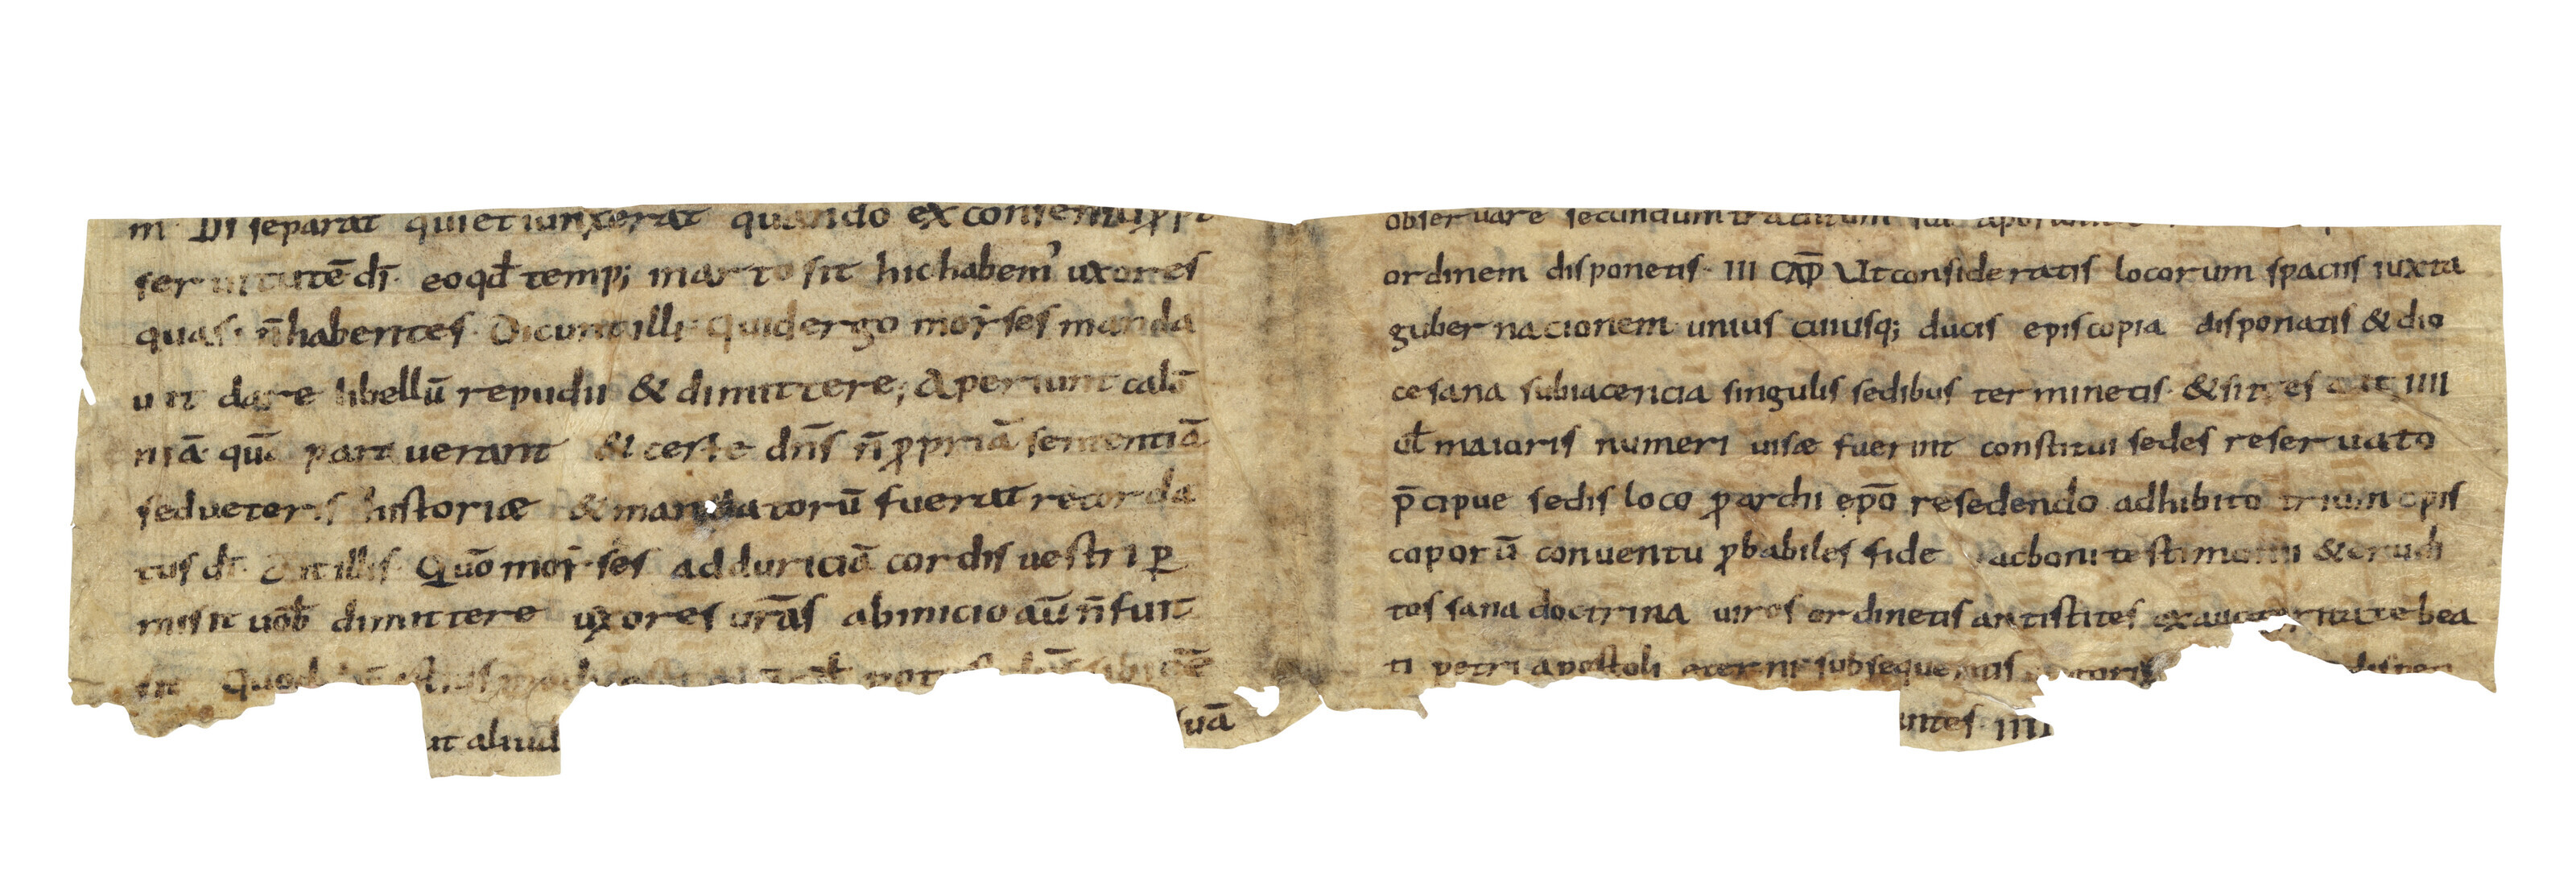 m. Di separat qui et iunxerat quando ex consensu ꝓpt
seruitutē dī. eo qđ temp; in arto sit hic habem᾽ uxores
quasi n̄ habentes. Dicunt illi quid ergo moẏses manda
uit dare libellū repudii & dimittere; Aperiunt calū
niā quā parauerant & certe dn̄s n̄ ꝓpriā sententiā
sed ueteris historiæ & mandatorū fuerat recorda
tus dī. Ait illis. Quō moẏses ad duriciā cordis uestri ꝑ
misit uob̄ dimittere uxores ur̄as ab inicio aū n̄ fuit
sic Quod
it aliud
suā
obseruare secundum traditum
ordinem disponetis. III CAP̄ Ut consideratis locorum spaciis iuxta
gubernacionem unius cuiusq; ducis episcopia disponatis & dio
cesana subiacencia singulis sedibus terminetis. & si tres aut IIII
uł maioris numeri uisæ fuerint constitui sedes reseruato
p̄cipue sedis loco ꝑ archi ep̄o resedendo adhibito trium epis
coporū conuentu ꝓbabiles fide ac boni testimonii & erudi
tos sana doctrina uiros ordinetis antistites ex auctoritate bea
ti petri apostoli
antes. IIII